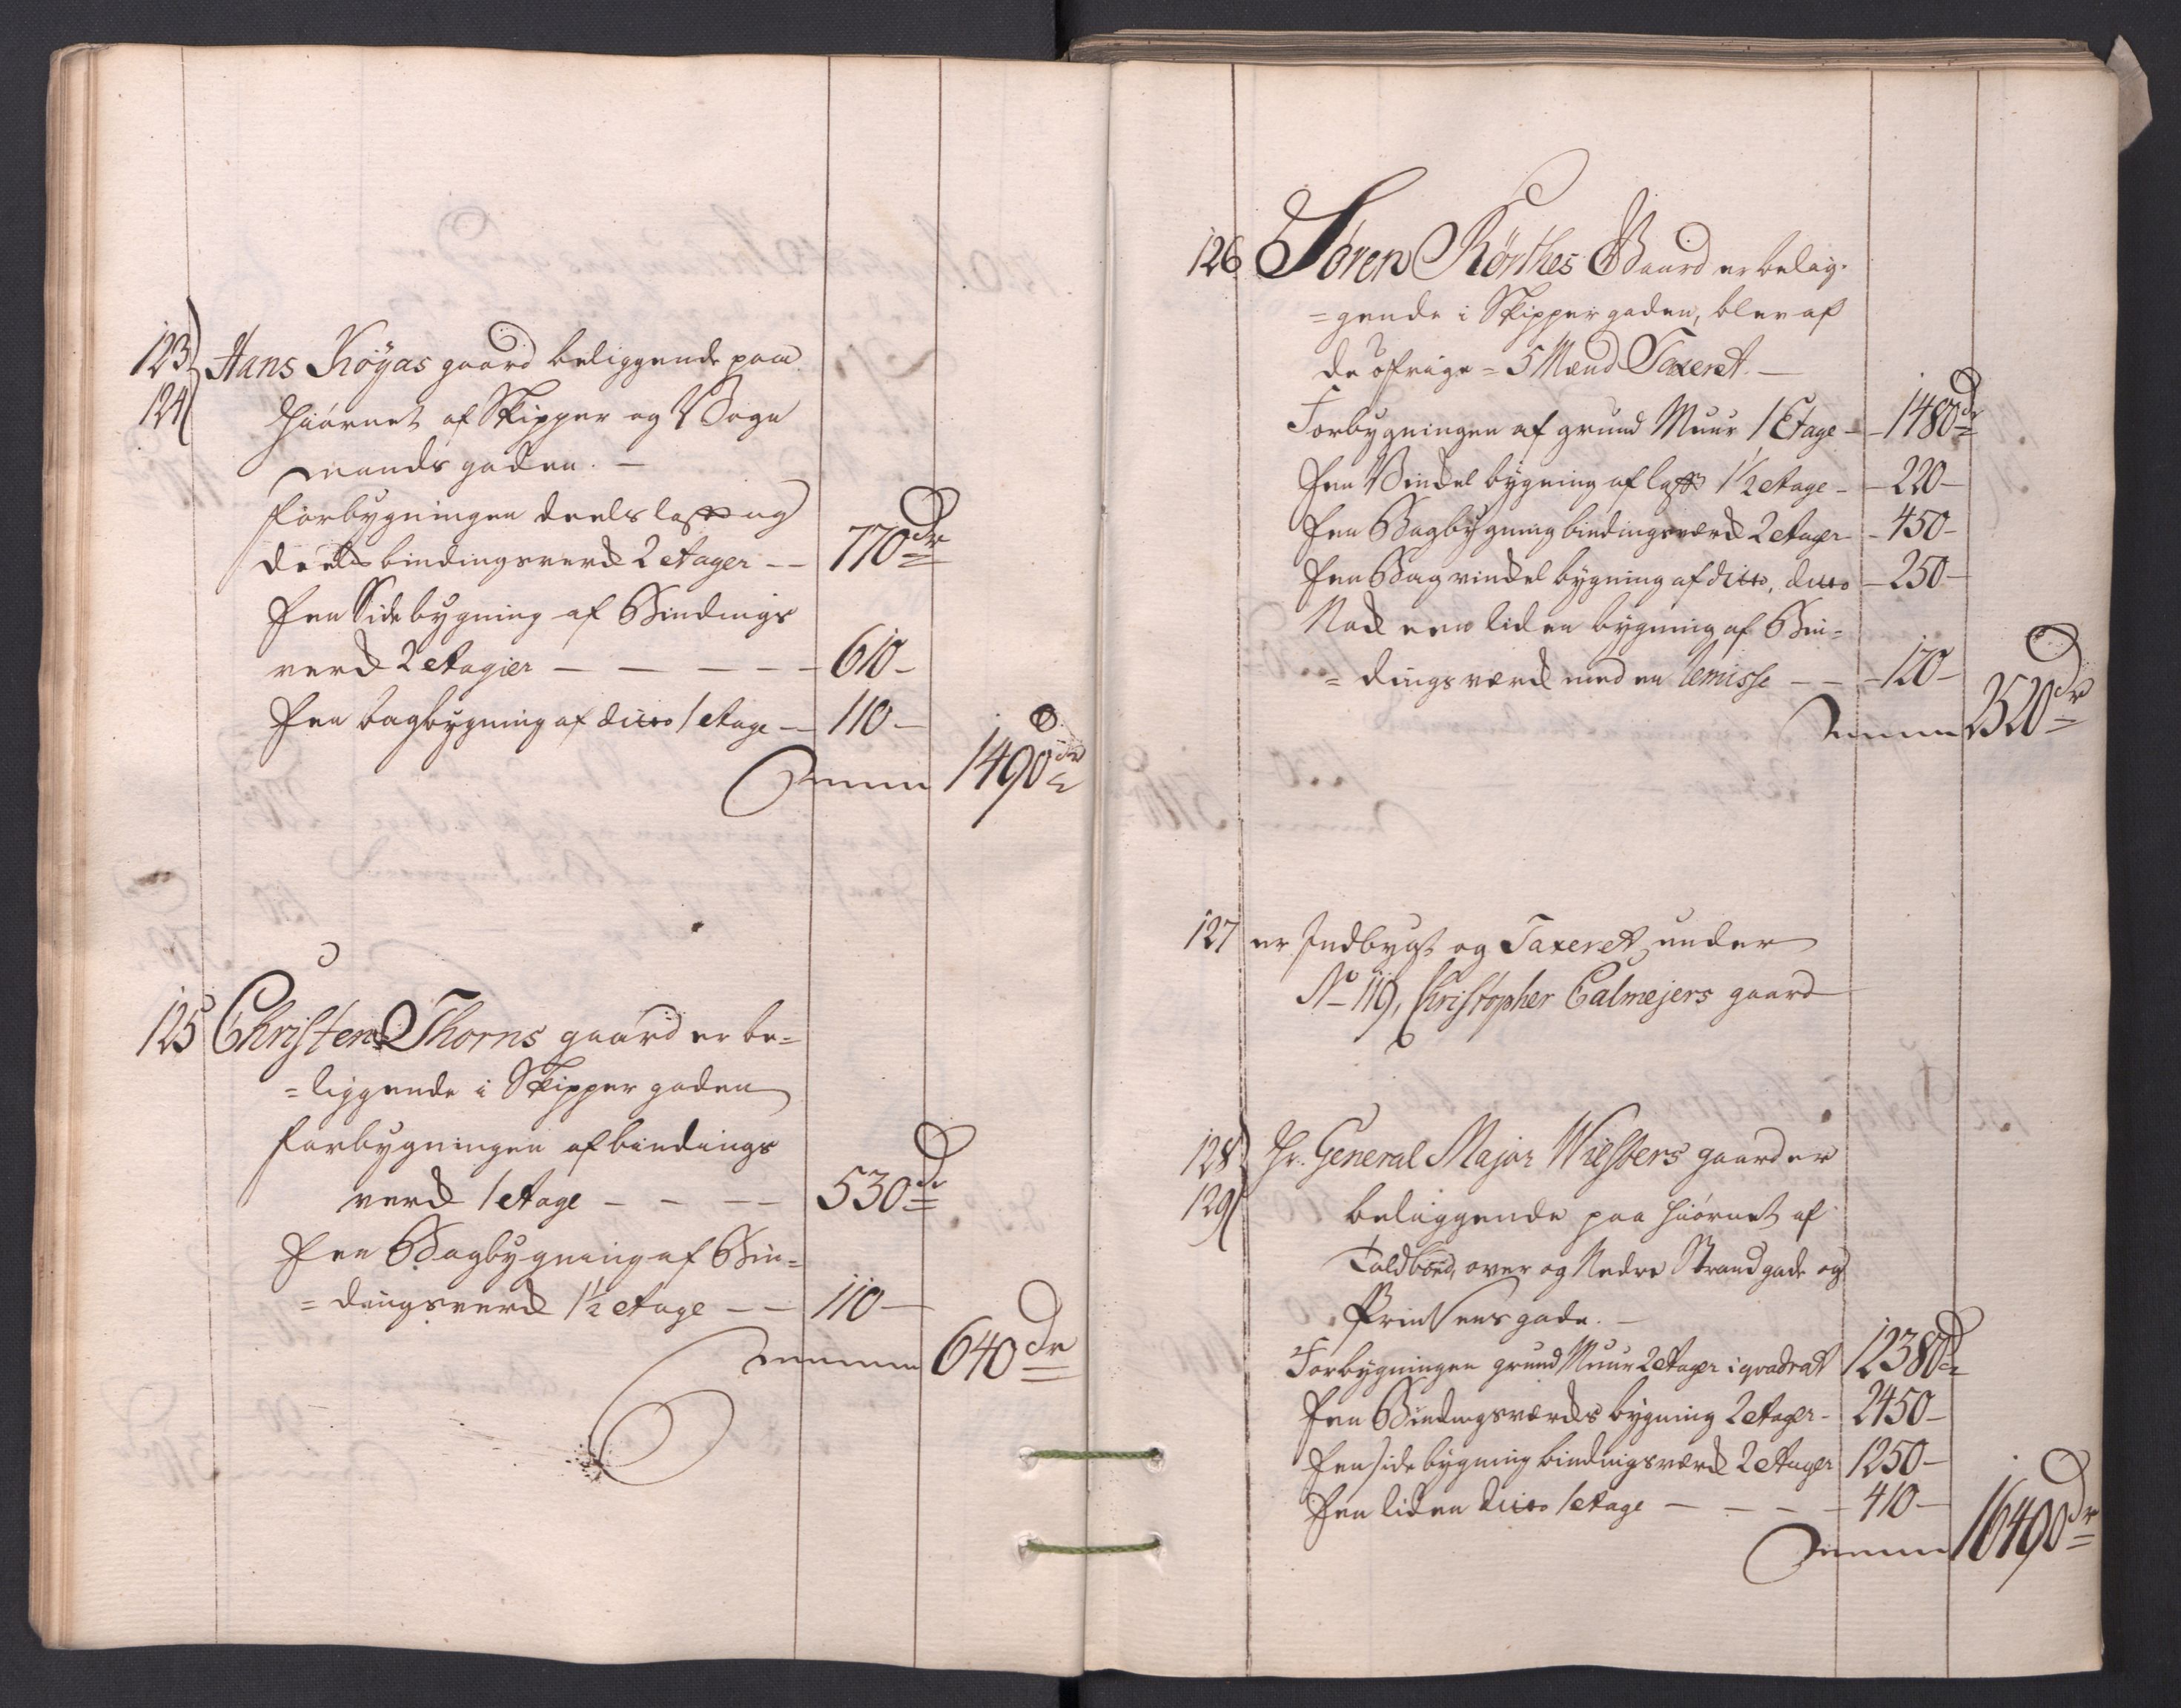 123 Hans Köyas gaard beliggende paa
124 Hiörnet af Skipper og Vogn
mands gaden. —
Forbygningen deels laft og
deels bindingsverk 2 etager — — 770 dr
Een Sidebygning af Bindings
verk 2 etagier — — — — — 610 —
Een bagbygning af ditto 1 etage — 110 —
Summa 1490 dr
125 Christen Thorns gaard er be=
=liggende i Skipper gaden
Forbygningen af bindings
verk 1 etage — — — — 530 dr
Een Bagbygning af Bin=
=dingsverk 1½ etage — — 110 —
Summa 640 dr
126 Sören Körthes Gaard er belig=
=gende i Skipper gaden, blev af
de öfrige = 5 Mænd Taxeret. —
Forbygningen af grund Muur 1 Etage — 1480 dr
Een Vindel bygning af laft 1½ etage — 220 —
Een Bagbygning bindingsværk 2 etager — 450 —
Een Bag vindel bygning af ditto, ditto — 250 —
Nok een liden bygning af Bin=
=dings værk med en Remisse — — 120 —
Summa 2520 dr
127 er Indbygt og Taxeret under
No 119, Christopher Calmejers gaard
128 Hr. General Major Wielsters gaard er
129 beliggende paa Hiörnet af
Toldbod, over og Nedre Strandgade og
Printzens gade. —
Forbygningen grund Muur 2 Etager i qvadrat 12380 dr
Een Bindingsværks bygning 2 etager — 2450 —
Een side bygning bindingsværk 2 etager 1250 —
Een liden ditto 1 etage — — — — 410 —
Summa 16490 dr